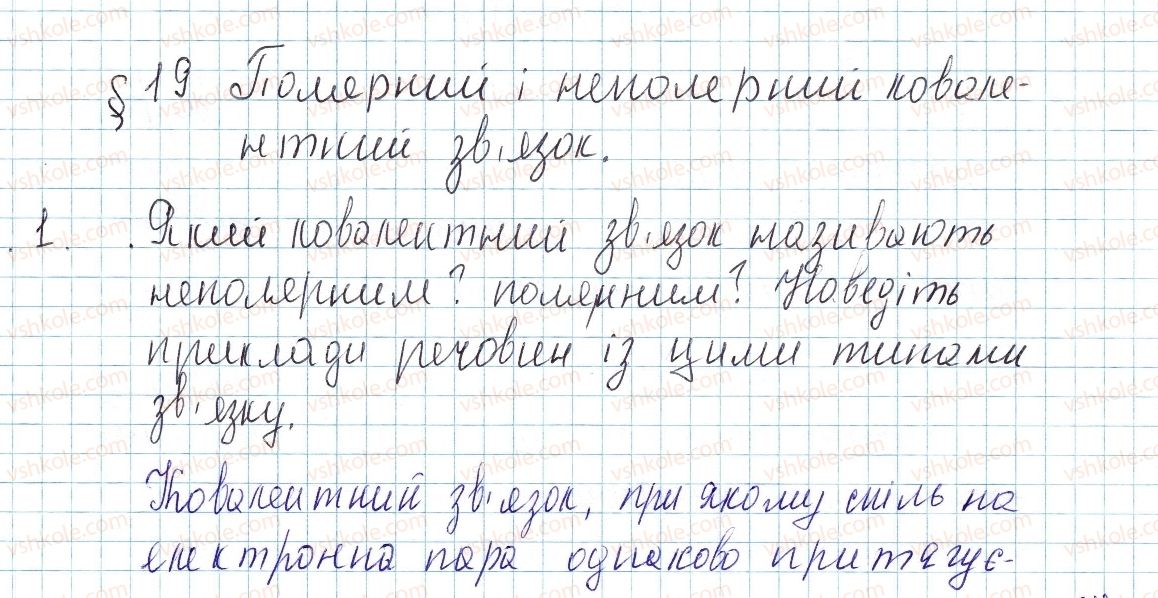 § 19 Полярний і неполерний ковале-
нтний зв'язок.
1. Який ковалентний зв'язок називають
неполерним? полярним? Наведіть
приклади речовин із цими типами
зв'язку.
Ковалентний зв'язок, при якому спіль на
електронна пара однаково притягує-